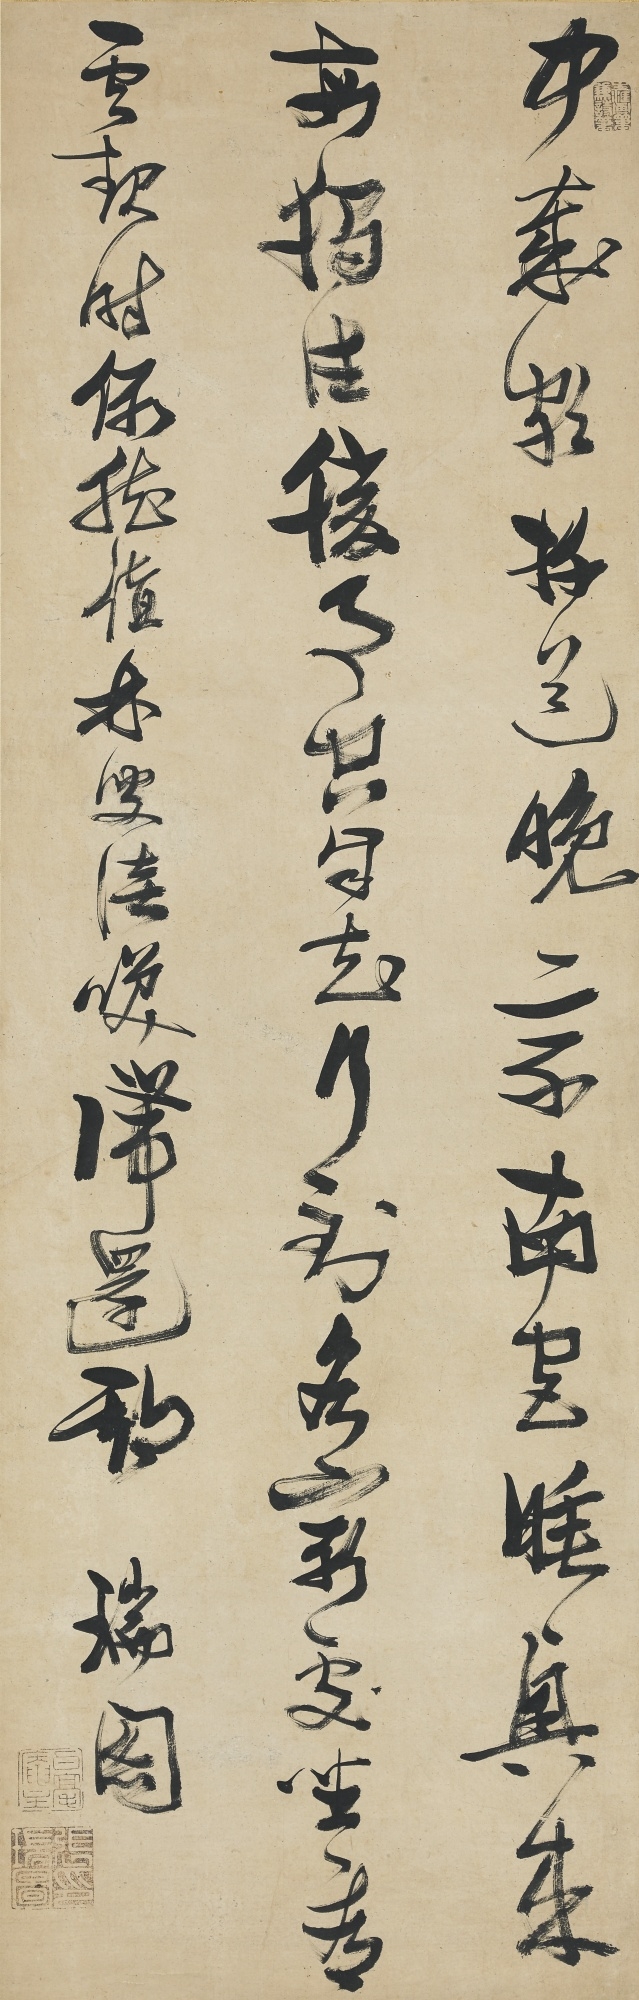 中歲頗好道晚南興來
每獨往勝事自知行到處坐看
雲起時偶然值林叟談笑滯還期
瑞圖